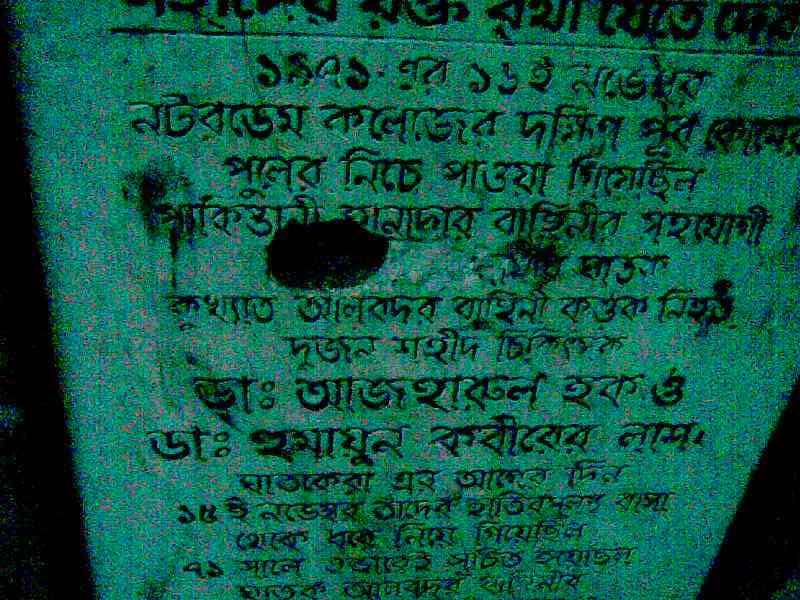 শহীদের রক্ত বৃথা যেতে দেব
১৯৭১ এর ১৬ই নভেম্বর
নটরডেম কলেজের দক্ষিণ পূর্ব কোনের
পুলের নিচে পাওয়া গিয়েছিল
পাকিস্তানী হানাদার বাহিনীর সহযোগী
ঘাতক
কুখ্যাত আলবদর বাহিনী কর্তৃক নিহত
দুজন শহীদ চিকিৎসক
ডাঃ আজহারুল হক ও
ডাঃ হুমায়ুন কবীরের লাশ।
ঘাতকেরা এর আগের দিন
১৫ই নভেম্বর তাদের হাতিরপুলের বাসা
থেকে ধরে নিয়ে গিয়েছিল
৭১ সালে এভাবেই সূচিত হয়েছিল
ঘাতক আলবদর বাহিনীর